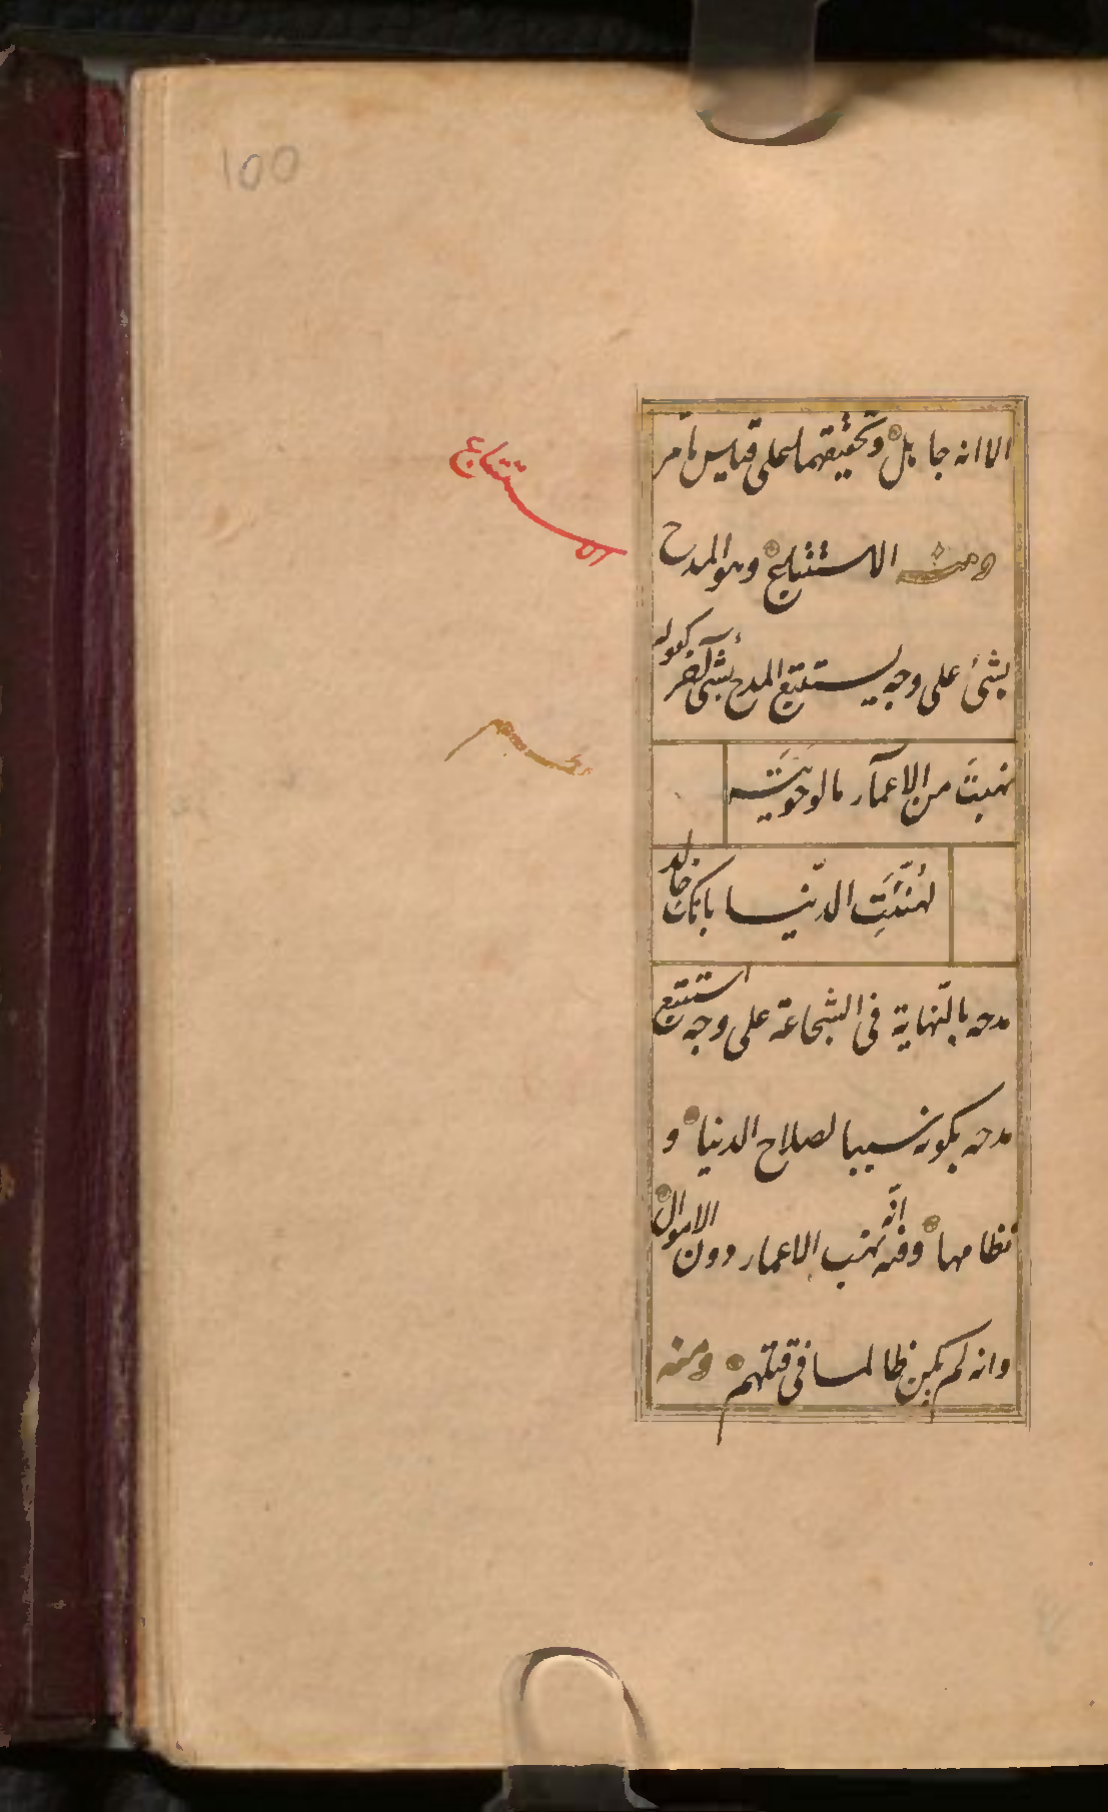 100
الا انه جاهل وتحقيقهما على قياس ما مر
ومنه الاستتباع وهو المدح
الاستتباع
بشئ على وجه يستتبع المدح بشئ آخر كقوله
نهبتَ من الاعمار ما لو حويته
لهُنّئَتِ الدّنيا بانك خالد
مدحه بالنّهاية فى الشجاعة على وجه استتبع
مدحه بكونه سببا لصلاح الدنيا و
نظامها وفيه انّه نهب الاعمار دون الاموال
وانه لم يكن ظالما فى قتلهم ومنه